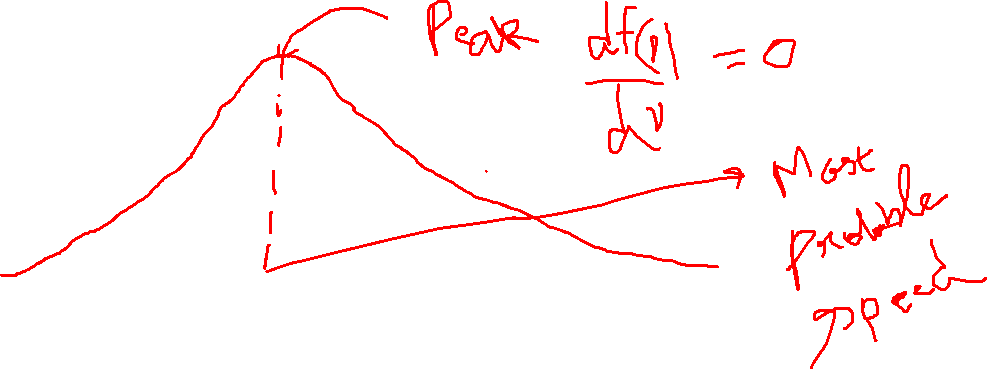 Peak df(v)/dv = 0
Most
Probable
speed